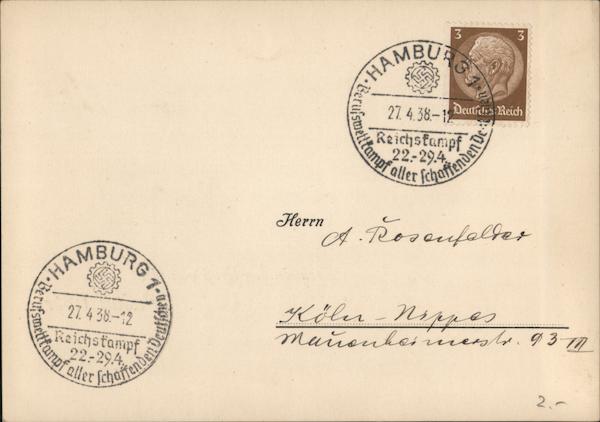 3 3
Deutsches Reich
HAMBURG 1
27.4.38.-12
Reichskampf
22.-29.4.
Berufswettkampf aller schaffenden De
Herrn
A. Rosenfelder
Köln-Nippes
Mauenheimerstr. 93 III
HAMBURG 1
27.4.38.-12
Reichskampf
22.-29.4.
Berufswettkampf aller schaffenden Deutschen
2.-